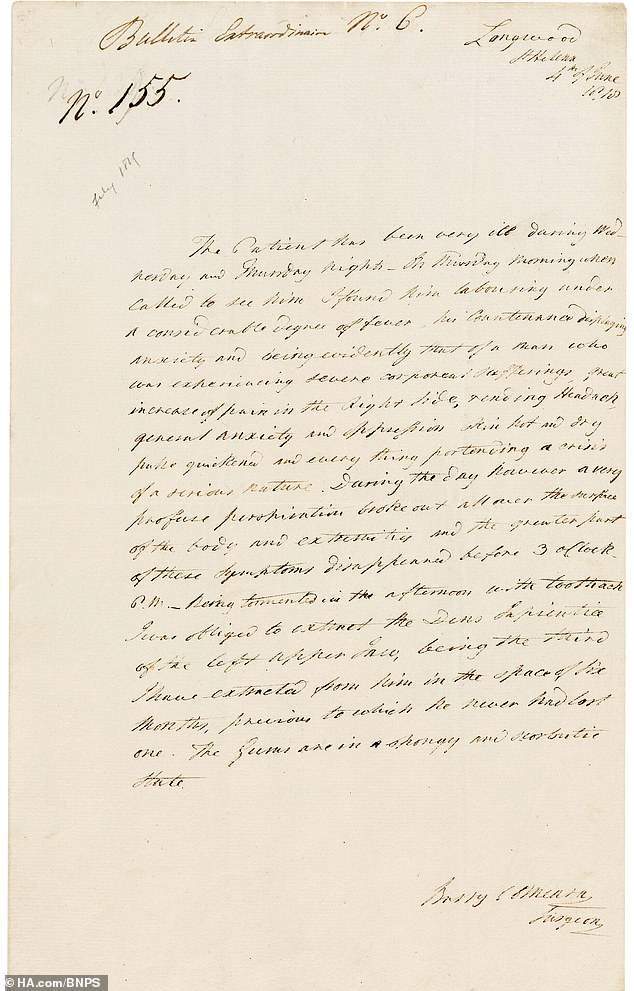 Bulletin Extraordinaire No. 6.
Longwood
St Helena
4th of June
1818
No. 155.
July
The Patient has been very ill during Wed-
nesday and Thursday nights - On Thursday morning when
called to see him I found him labouring under
a considerable degree of fever, his Countenance displaying
anxiety and being evidently that of a man who
was experiencing severe corporeal sufferings, great
increase of pain in the Right Side, rending Headach,
general anxiety and oppression skin hot and dry
pulse quickened and every thing portending a crisis
of a serious nature. During the day however a very
profuse perspiration broke out all over the surface
of the body and extremities and the greater part
of these symptoms disappeared before 3 o'Clock
P.M. - Being tormented in the afternoon with toothach
I was obliged to extract the Dens Sapientiæ
of the left upper Jaw, being the third
I have extracted from him in the space of six
months, previous to which he never had lost
one. The Gums are in a spongy and scorbutic
state.
Barry O'Meara
Surgeon
© HA.com/BNPS